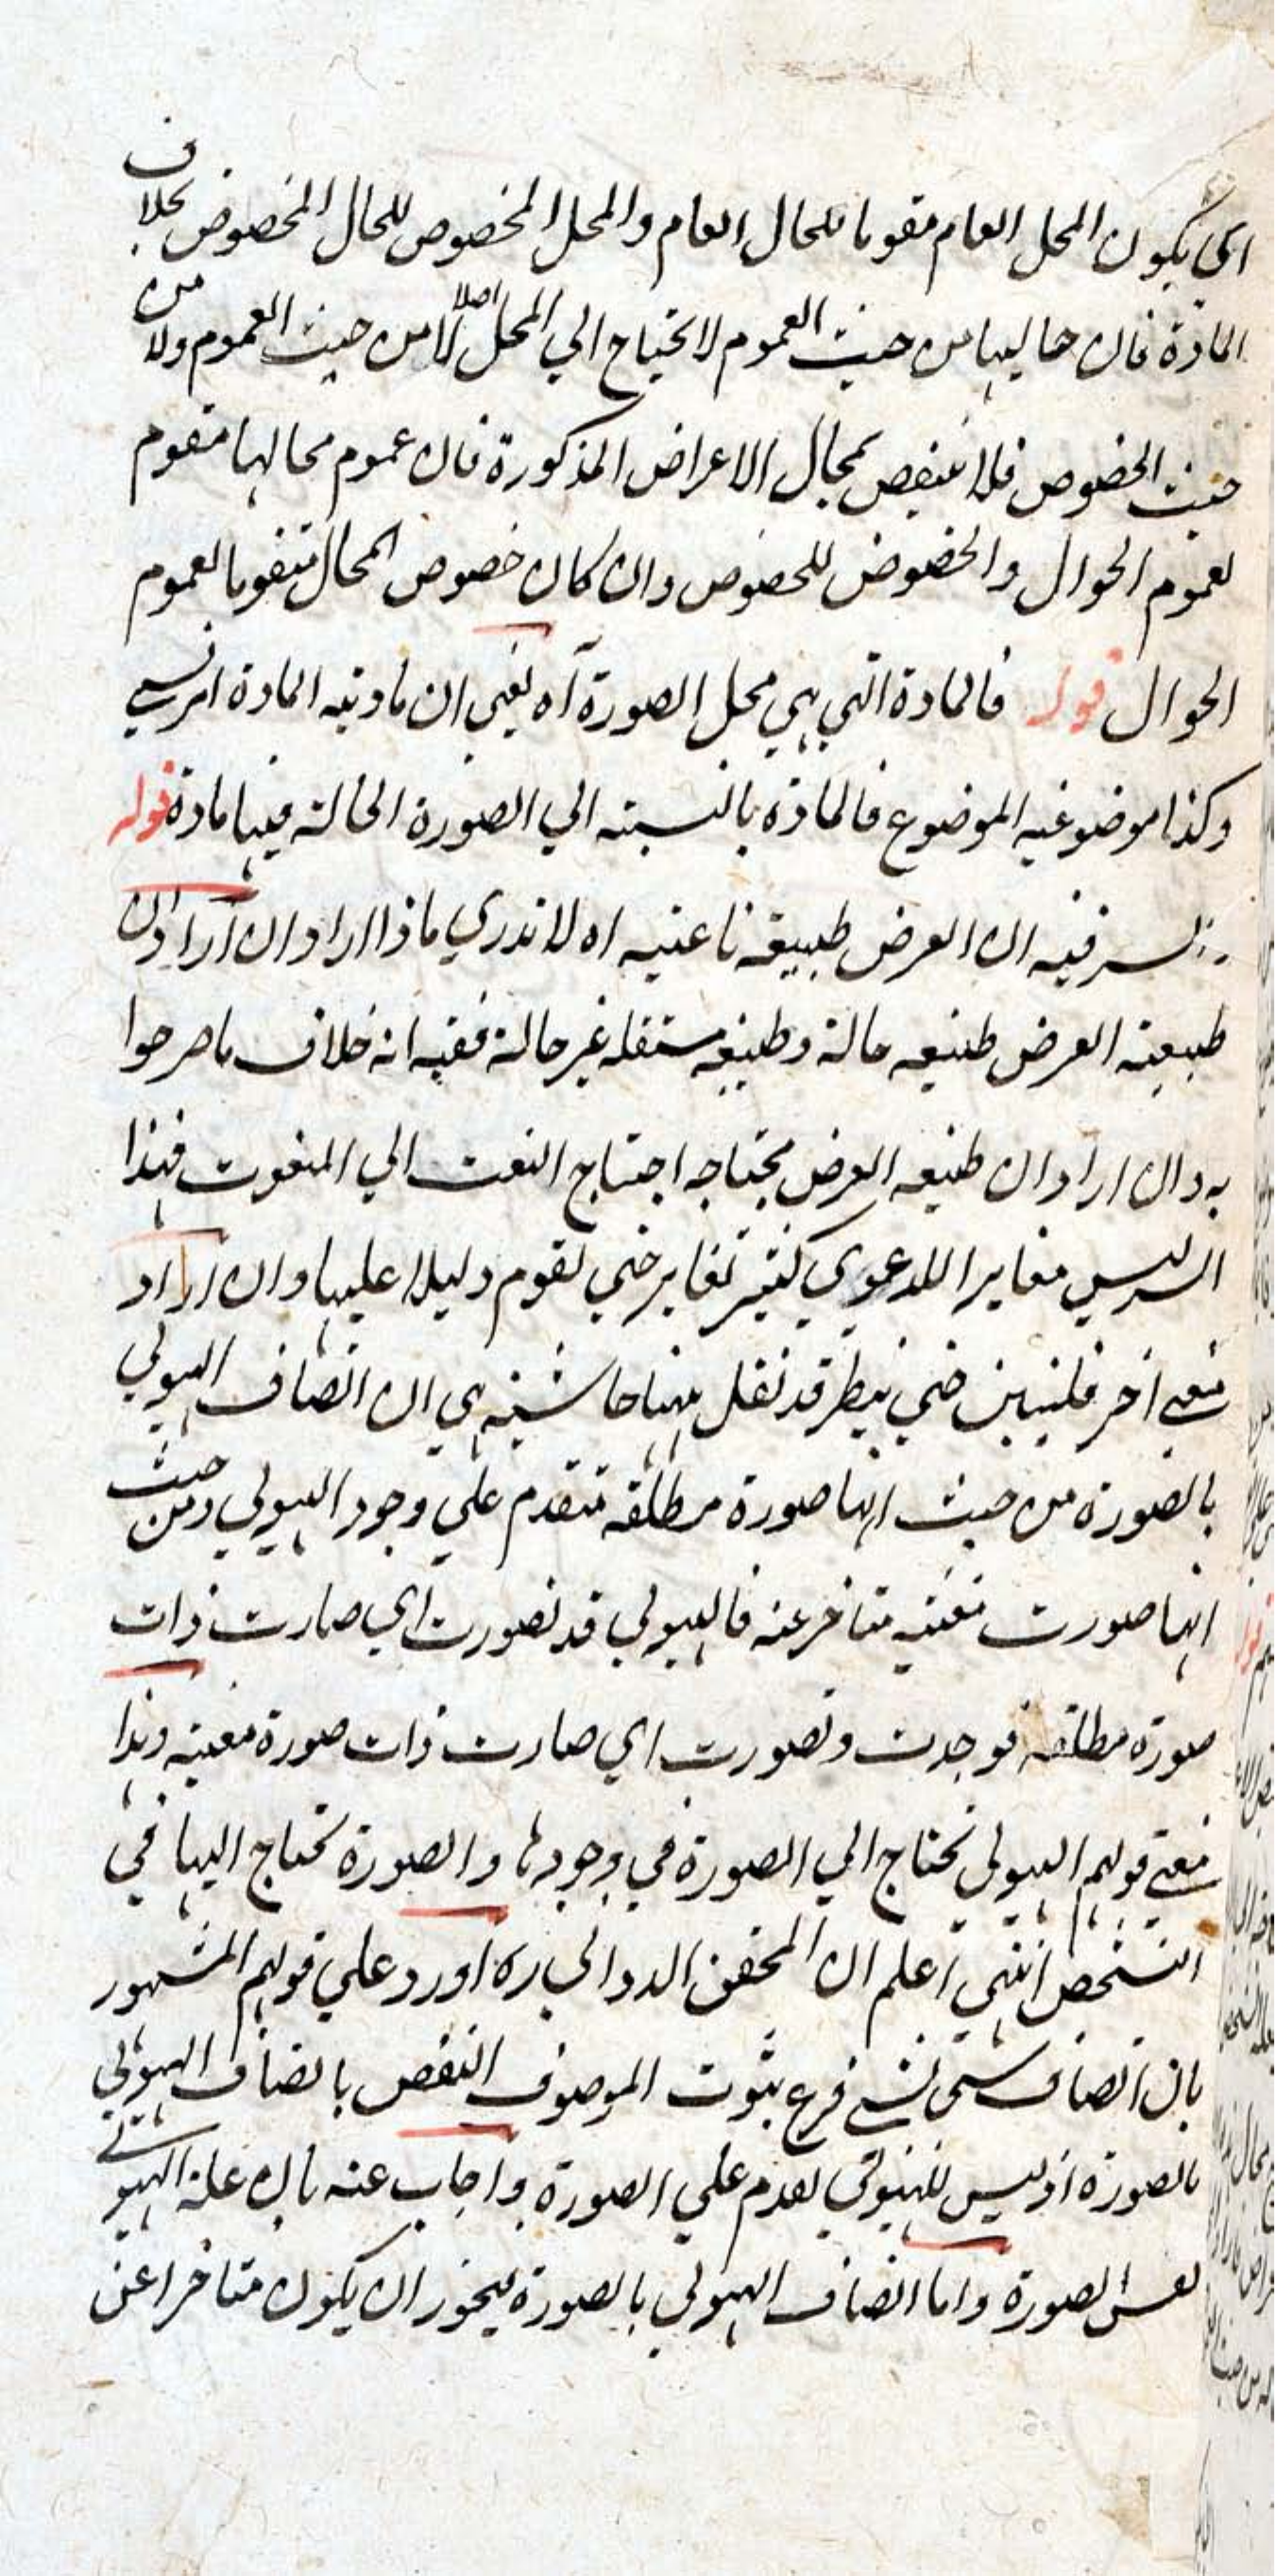 اى يكون المحل العام مقوما للحال العام والمحل المخصوص للحال المخصوص بخلاف
المادة فان حاليها من حيث العموم لا تحتاج الي المحل اصلا لا من حيث العموم ولا من
حيث الخصوص فلا ينتقض بمحال الاعراض المذكورة فان عموم محالها مقوم
لعموم الحوال والخصوص للخصوص وان كان خصوص المحال متقوما لعموم
الحوال قوله فالمادة التي هي محل الصورة آه يعني ان مادتيه المادة امر نسبي
وكذا موضوعيه الموضوع فالمادة بالنسبته الي الصورة الحالة فيها مادة قوله
السر فيه ان العرض طبيعة ناعتيه اه لا ندري ماذا اراد ان اراد ان
طبيعته العرض طبيعه حالة وطبيعه مستقله غير حالة ففيه انه خلاف ما صرحوا
به وان اراد ان طبيعه العرض محتاجه احتياج النعت الي المنعوت فهذا
ليس مغايرا للدعوي كثير تغاير حتي يقوم دليلا عليها وان اراد
معني آخر فليبين حتي ينظر قد نقل ههنا حاشيته هي ان اتصاف الهيولي
بالصورة من حيث انها صورة مطلقه متقدم علي وجود الهيولي ومن حيث
انها صورت معينه متاخر عنه فالهيولي قد تصورت اي صارت ذات
صورة مطلقه فوجدت وتصورت اي صارت ذات صورة معينه وهذا
معني قولهم الهيولي تحتاج الي الصورة في وجودها والصورة تحتاج اليها في
التشخص انتهي اعلم ان المحقق الدواني ره اورد علي قولهم المشهور
بان اتصاف شئ بشئ فرع ثبوت الموصوف النقض باتصاف الهيولي
بالصورة اذ ليس للهيولي تقدم علي الصورة واجاب عنه بان علة الهيولي
نفس الصورة واما اتصاف الهيولي بالصورة فيجوز ان يكون متاخرا عن